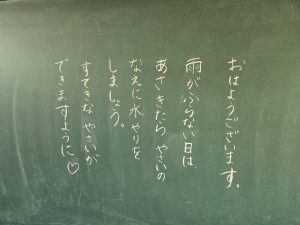 おはようございます。
雨がふらない日は
あさ きたら やさいの
なえに 水やりを
しましょう。
すてきな やさいが
できますように♡